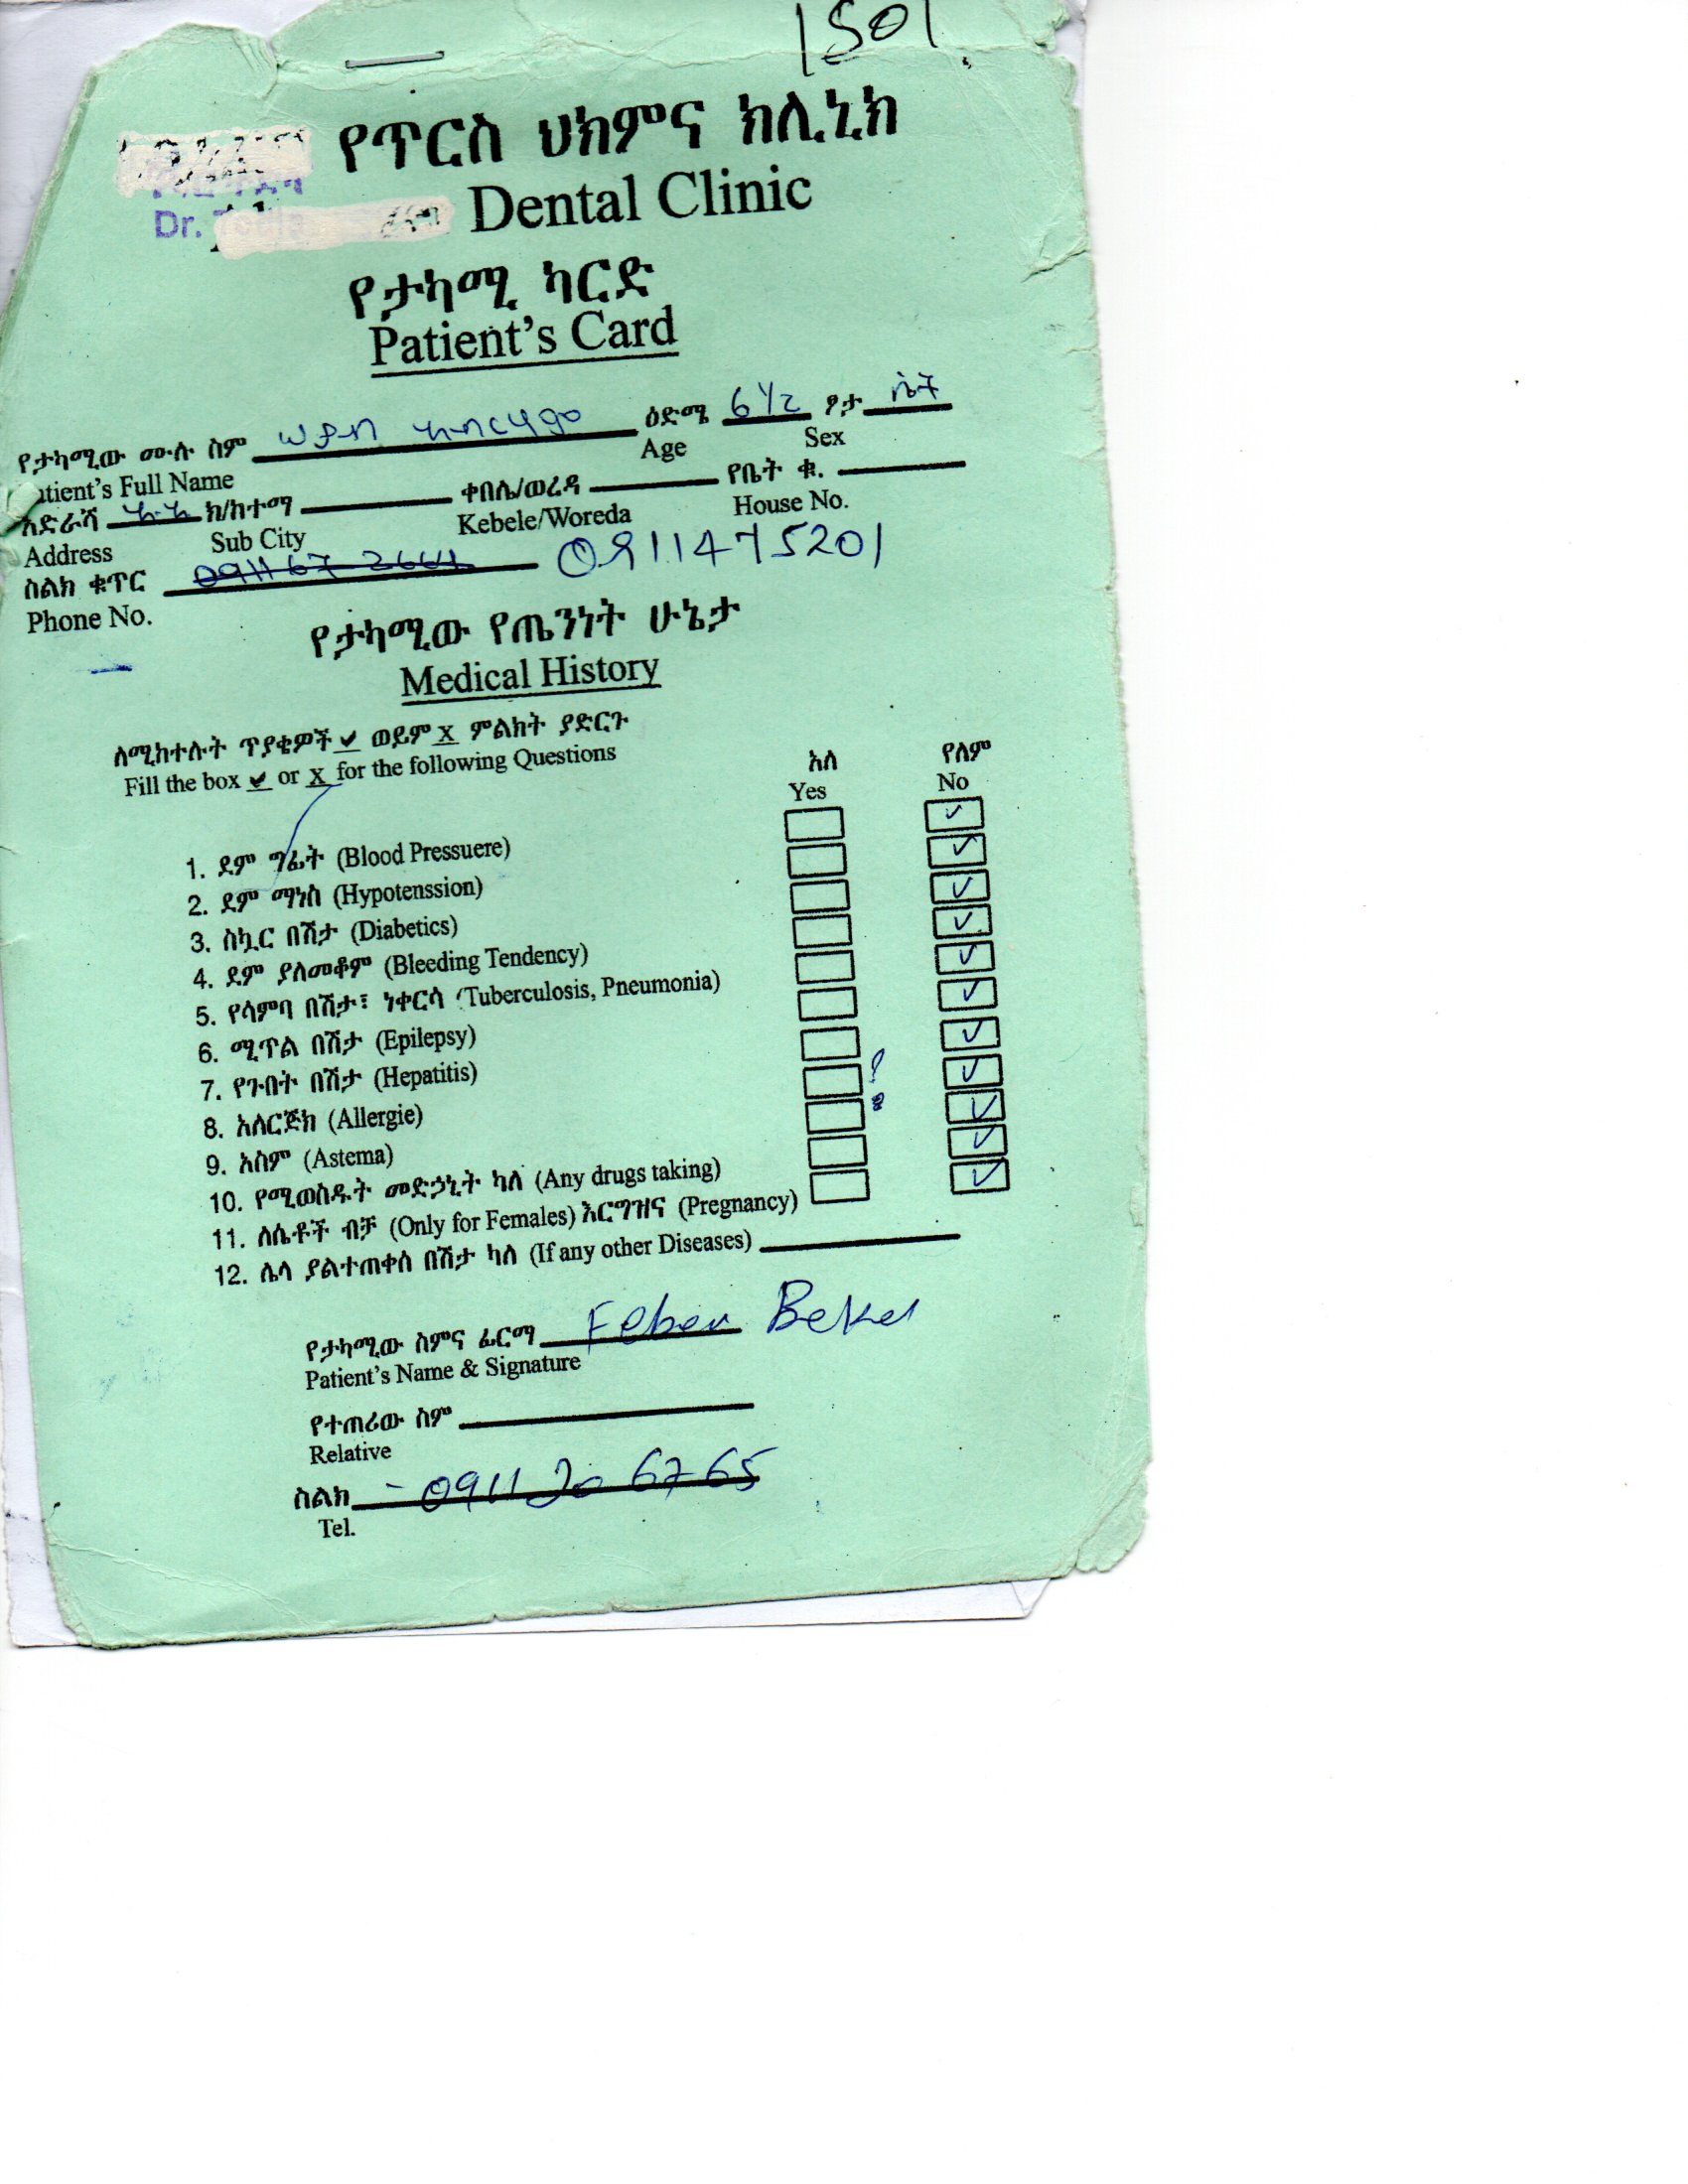 1501
የጥርስ ህክምና ክሊኒክ
Dr. Dental Clinic
የታካሚ ካርድ
Patient's Card
የታካሚው ሙሉ ስም አብርሃም ዕድሜ 6 1/2 ፆታ ሴት
Patient's Full Name Age Sex
አድራሻ አ.አ ክ/ከተማ ቀበሌ/ወረዳ የቤት ቁ.
Address Sub City Kebele/Woreda House No.
ስልክ ቁጥር 0911475201
Phone No.
የታካሚው የጤንነት ሁኔታ
Medical History
ለሚከተሉት ጥያቄዎች ✔ ወይም X ምልክት ያድርጉ
Fill the box ✔ or X for the following Questions
አለ የለም
Yes No
1. ደም ግፊት (Blood Pressuere) ✓
2. ደም ማነስ (Hypotenssion) ✓
3. ስኳር በሽታ (Diabetics) ✓
4. ደም ያለመቆም (Bleeding Tendency) ✓
5. የሳምባ በሽታ፣ ነቀርሳ (Tuberculosis, Pneumonia) ✓
6. ሚጥል በሽታ (Epilepsy) ✓
7. የጉበት በሽታ (Hepatitis) ✓
8. አለርጅክ (Allergie) ✓
9. አስም (Astema) ✓
10. የሚወስዱት መድኃኒት ካለ (Any drugs taking) ✓
11. ለሴቶች ብቻ (Only for Females) እርግዝና (Pregnancy) ✓
12. ሌላ ያልተጠቀሰ በሽታ ካለ (If any other Diseases)
የታካሚው ስምና ፊርማ Feben Bekel
Patient's Name & Signature
የተጠሪው ስም
Relative
ስልክ - 0911 20 6765
Tel.